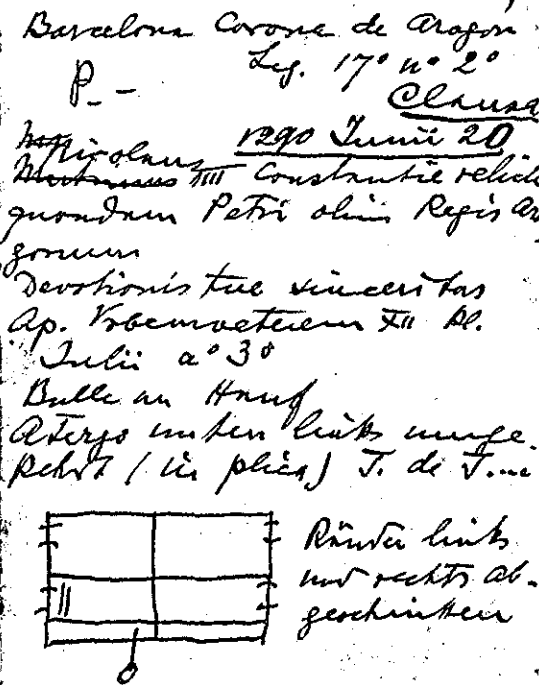 Barcelona Corona de Aragon
Leg. 17º nº 2º
P. -
Clausa
1290 Junii 20
Nicolaus IIII Constantie relicte
quondam Petri olim Regis Ara
gonum
Devotionis tue sinceritas
Ap. Urbemveterem XII kl.
Julii aº 3º
Bulle an Hanf
A tergo unten links umge-
kehrt (in plica) J. de J...
Ränder links
und rechts ab-
geschnitten